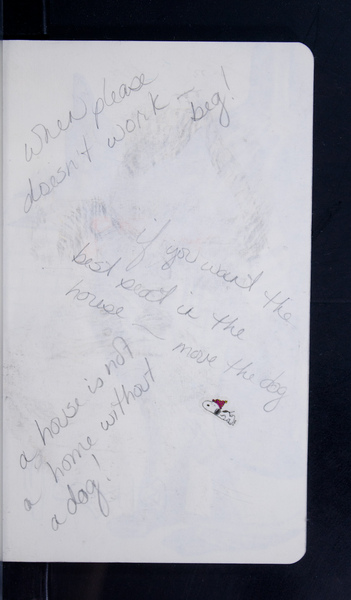 when please
doesn't work – beg!
if you want the
best seat in the
house – move the dog
a house is not
a home without
a dog!